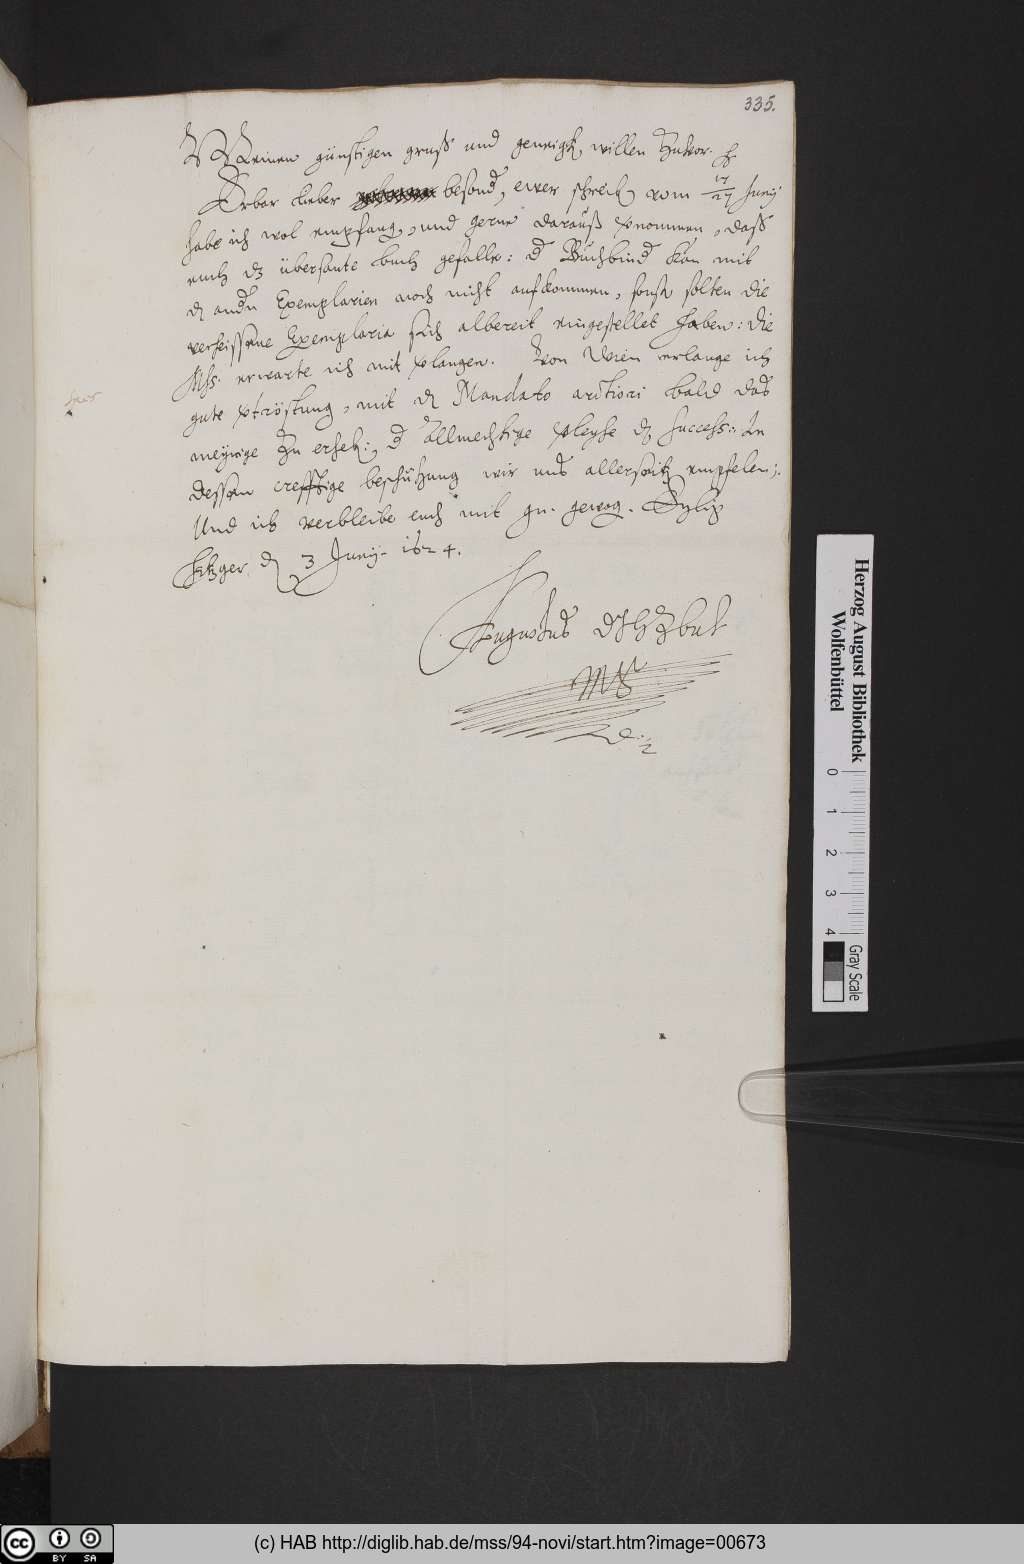 335.
Meinen günstigen gruß und geneigt. willen Zuvor.
Erbar lieber besond, ewer schreib. vom 17/27 Junij
habe ich wol empfang., und gerne darauß vnommen, daß
euch dz übersante buch gefalle: d Buchbind kan mit
d andn Exemplarien noch nicht aufkommen, sonst solten die
verheissene Exemplaria sich albereit eingestellet haben: die
Mss. erwarte ich mit vlangen. Von Wien erlange ich
gute vtröstung, mit d Mandato arctiori bald das
meynige zu erhal: d Allmechtige vleyhe d success: In
dessen crefftige beschützung wir uns allerseitz empfelen;
Und ich verbleibe euch mit gn. gewog.
d 3 Junij. 1624.
Augustus
Herzog August Bibliothek
Wolfenbüttel
0 1 2 3 4
Gray Scale
cc BY SA
(c) HAB http://diglib.hab.de/mss/94-novi/start.htm?image=00673